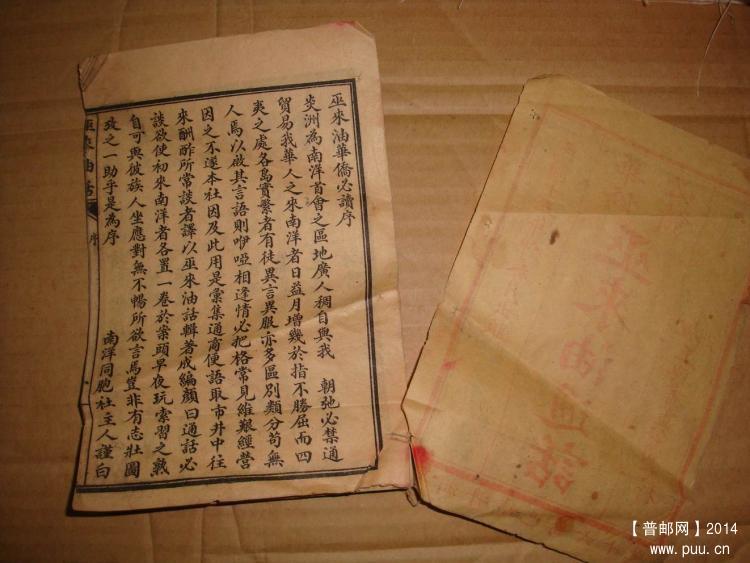 巫來油華僑必讀序
炎洲為南洋首會之區地廣人稠自與我　朝弛必禁通
貿易我華人之來南洋者日益月增幾於指不勝屈而四
夷之處各島實繁有徒異言異服亦多區別類分苟無
人焉以啟其言語則咿啞相逢情必扞格常見維艱經營
因之不遂本社因及此用是彙集通商便語取市井中往
來酬酢所常談者譯以巫來油話輯著成編顏曰通話必
談欲使初來南洋者各置一卷於案頭早夜玩索習之熟
自可與彼族人坐應對無不暢所欲言焉豈非有志壯圖
致之一助乎是為序
南洋同胞社主人謹白
巫來油話
序
巫來油通話
【普邮网】2014
www.puu.cn